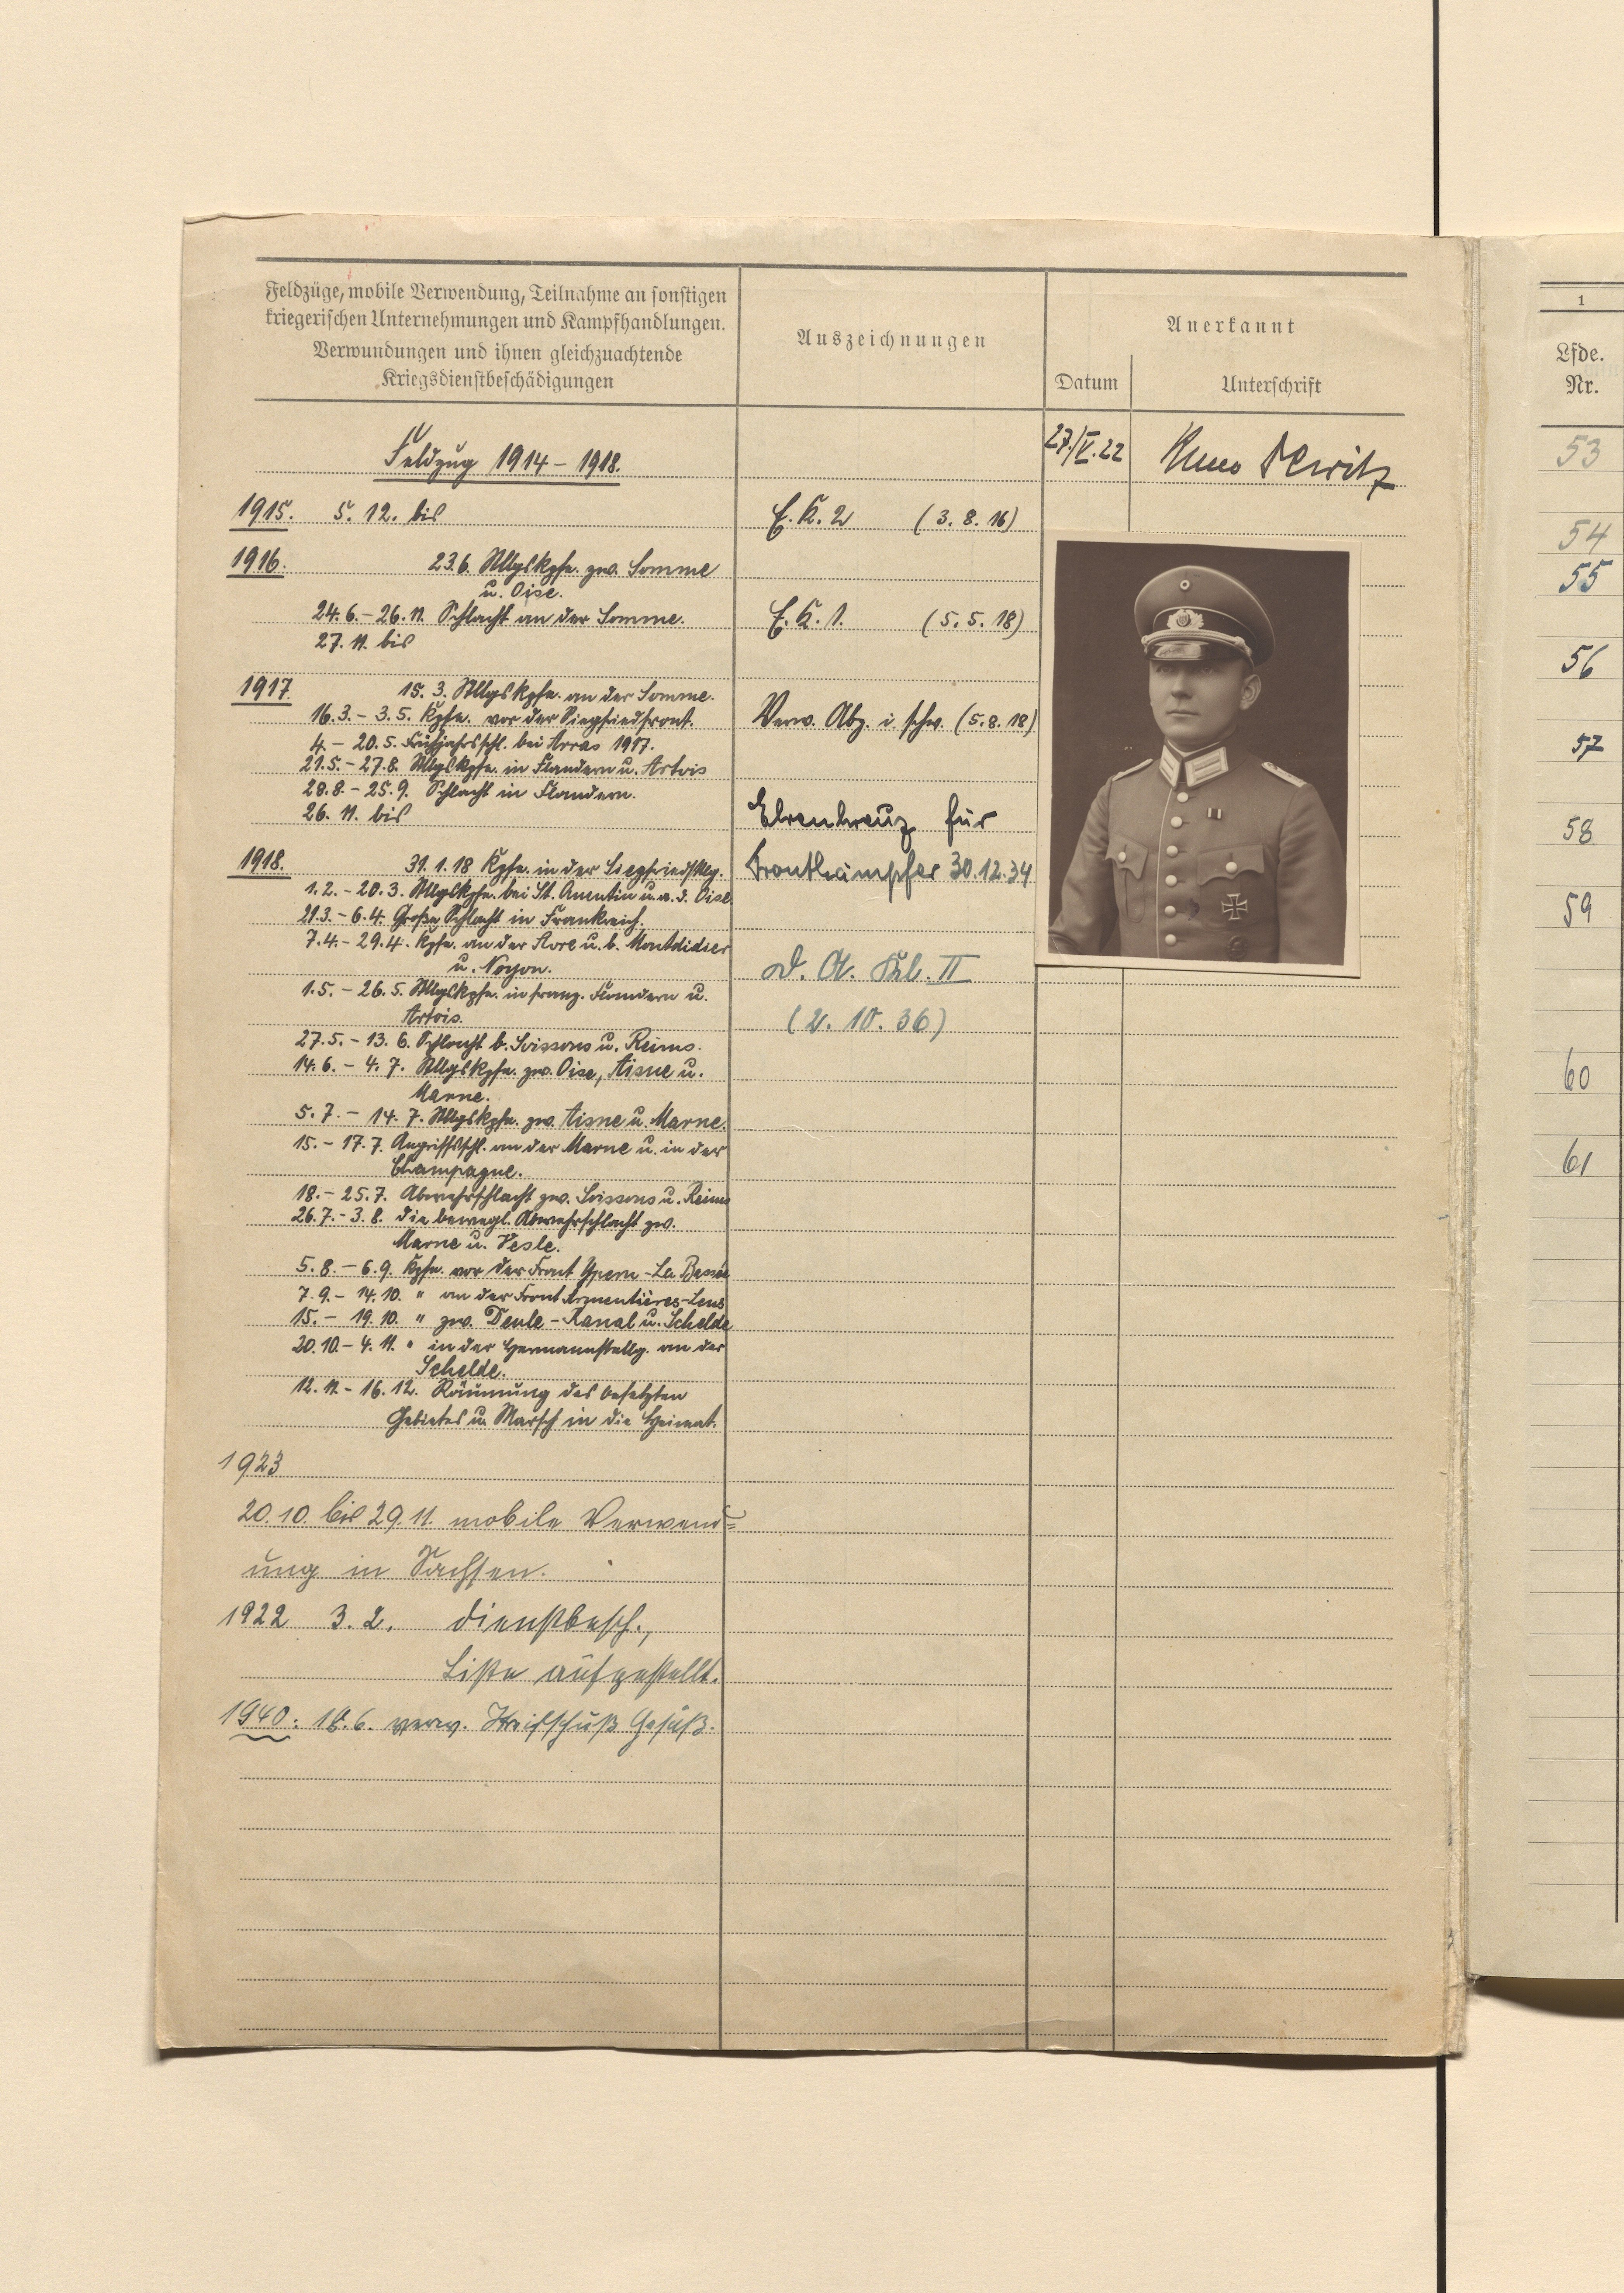 Feldzüge, mobile Verwendung, Teilnahme an sonstigen
kriegerischen Unternehmungen und Kampfhandlungen.
Verwundungen und ihnen gleichzuachtende
Kriegsdienstbeschädigungen
Auszeichnungen
Anerkannt
Datum
Unterschrift
Feldzug 1914 – 1918.
27./V.22
1915. 5. 12. bis
E. K. 2 (3. 8. 16)
1916. 23.6. Stllgskpfe. zw. Somme
u. Oise.
24. 6. – 26. 11. Schlacht an der Somme.
E. K. 1. (5. 5. 18)
27. 11. bis
1917. 15. 3. Stllgskpfe. an der Somme.
16. 3. – 3. 5. Kpfe. vor der Siegfriedfront.
Verw. Abz. i. schw. (5. 8. 18)
4. – 20. 5. Frühjahrsschl. bei Arras 1917.
21. 5. – 27. 8. Stllgskpfe. in Flandern u. Artois
28. 8. – 25. 9. Schlacht in Flandern.
26. 11. bis
Ehrenkreuz für
Frontkämpfer 30.12.34
1918. 31. 1. 18 Kpfe. in der Siegfriedstllg.
1. 2. – 20. 3. Stllgskpfe. bei St. Quentin u. a. d. Oise
21. 3. – 6. 4. Große Schlacht in Frankreich.
7. 4. – 29. 4. Kpfe. an der Avre u. b. Montdidier
u. Noyon.
D. A. Kl. II
(2. 10. 36)
1. 5. – 26. 5. Stllgskpfe. in franz. Flandern u.
Artois.
27. 5. – 13. 6. Schlacht b. Soissons u. Reims.
14. 6. – 4. 7. Stllgskpfe. zw. Oise, Aisne u.
Marne.
5. 7. – 14. 7. Stllgskpfe. zw. Aisne u. Marne.
15. – 17. 7. Angriffsschl. an der Marne u. in der
Champagne.
18. – 25. 7. Abwehrschlacht zw. Soissons u. Reims
26. 7. – 3. 8. die bewegl. Abwehrschlacht zw.
Marne u. Vesle.
5. 8. – 6. 9. Kpfe. vor der Front Ypern – La Bassée
7. 9. – 14. 10. " an der Front Armentières – Lens
15. – 19. 10. " zw. Deule – Kanal u. Schelde
20. 10. – 4. 11. " in der Hermannstellg. an der
Schelde.
12. 11. – 16. 12. Räumung des besetzten
Gebietes u. Marsch in die Heimat.
1923
20. 10. bis 29. 11. mobile Verwend=
ung in Sachsen.
1922 3. 2. Dienstbesch.,
Liste aufgestellt.
1940: 6. verw. Streifschuß Gesäß.
1
Lfde.
Nr.
53
54
55
56
57
58
59
60
61